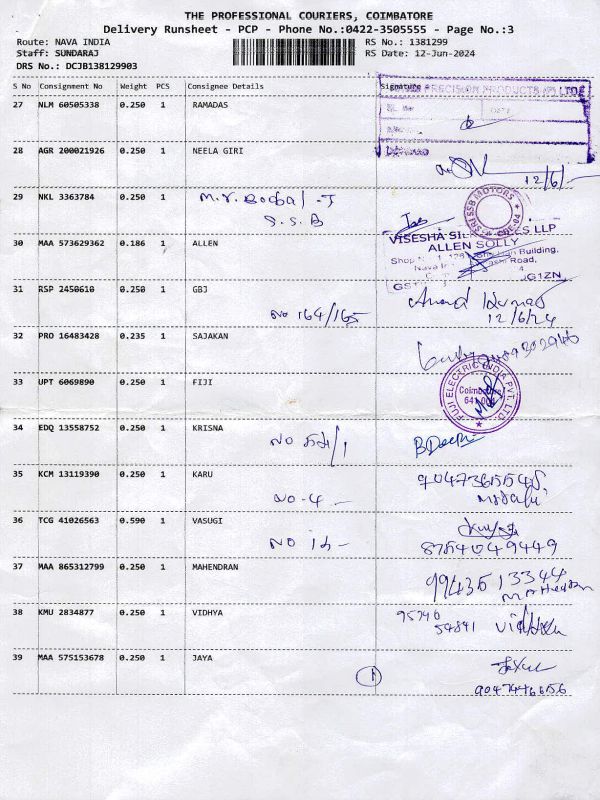 THE PROFESSIONAL COURIERS, COIMBATORE
Delivery Runsheet - PCP - Phone No.:0422-3505555 - Page No.:3
Route: NAVA INDIA
RS No.: 1381299
Staff: SUNDARAJ
RS Date: 12-Jun-2024
DRS No.: DCJB138129903
S No Consignment No Weight PCS Consignee Details Signature
PRECISION PRODUCTS (P) LTD
27 NLM 60505338 0.250 1 RAMADAS
28 AGR 200021926 0.250 1 NEELA GIRI
12/6/-
29 NKL 3363784 0.250 1
S.S.B
SRI SSB MOTORS
VISESHA LLP
30 MAA 573629362 0.186 1 ALLEN
ALLEN SOLLY
Building,
Road,
31 RSP 2450610 0.250 1 GBJ
NO 164/165
Anand Kumar
12/6/24
32 PRO 16483428 0.235 1 SAJAKAN
33 UPT 6069890 0.250 1 FIJI
FUJI ELECTRIC INDIA PVT. LTD.
Coimbatore
34 EDQ 13558752 0.250 1 KRISNA
NO
B Deepi
35 KCM 13119390 0.250 1 KARU
NO-4 -
36 TCG 41026563 0.590 1 VASUGI
NO 12 -
8754049449
37 MAA 865312799 0.250 1 MAHENDRAN
9943513344
38 KMU 2834877 0.250 1 VIDHYA
95746
54841 Vidhya
39 MAA 575153678 0.250 1 JAYA
1
9047446656